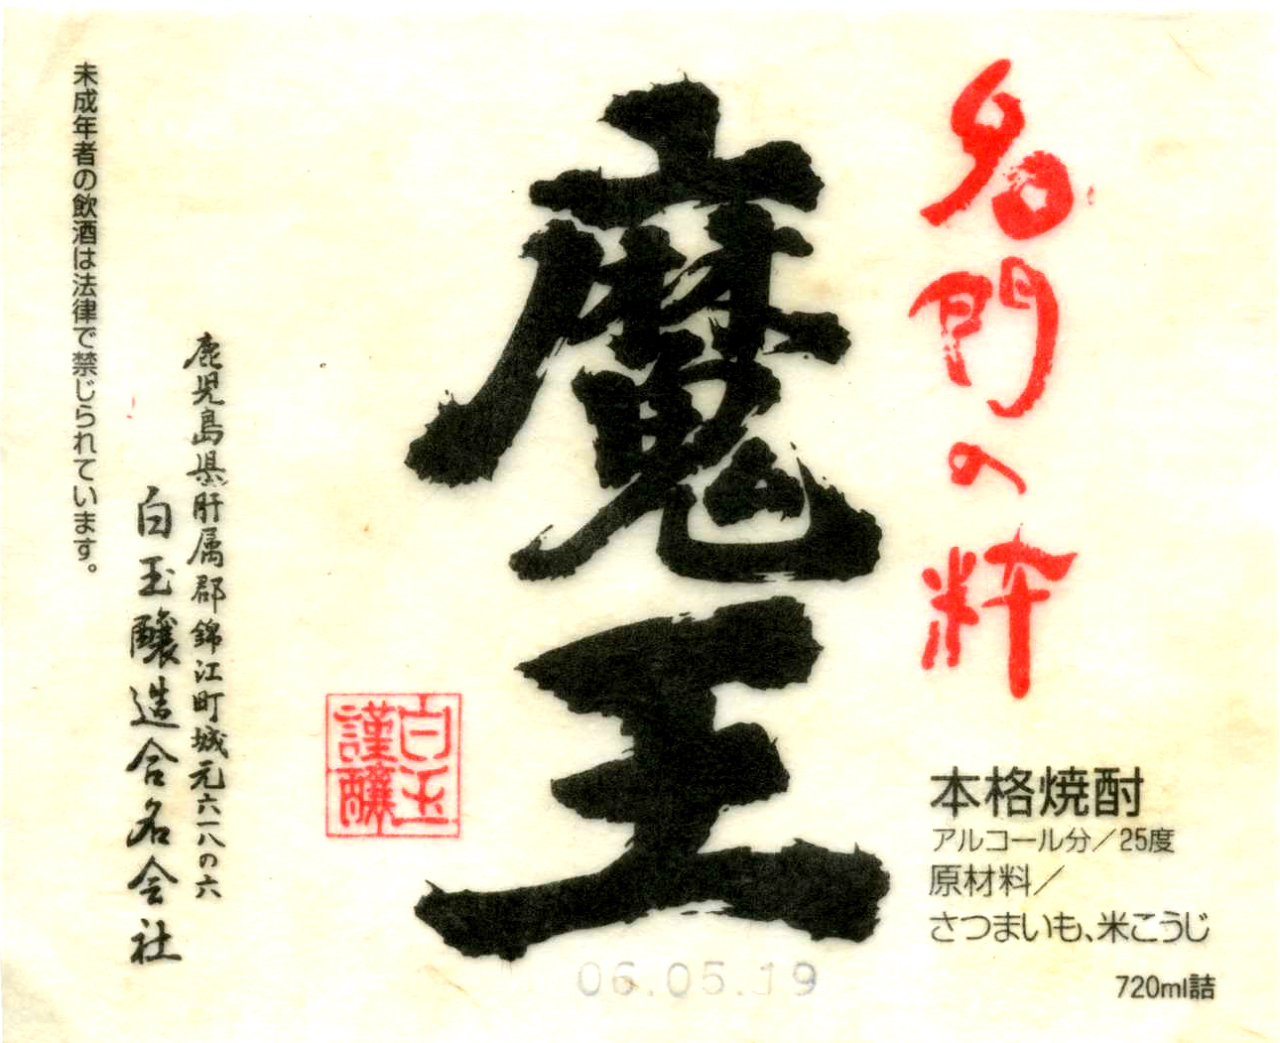 名門の粋
本格焼酎
アルコール分／25度
原材料／
さつまいも、米こうじ
720ml詰
魔王
06.05.19
白玉
謹醸
鹿児島県肝属郡錦江町城元六一八の六
白玉醸造合名会社
未成年者の飲酒は法律で禁じられています。